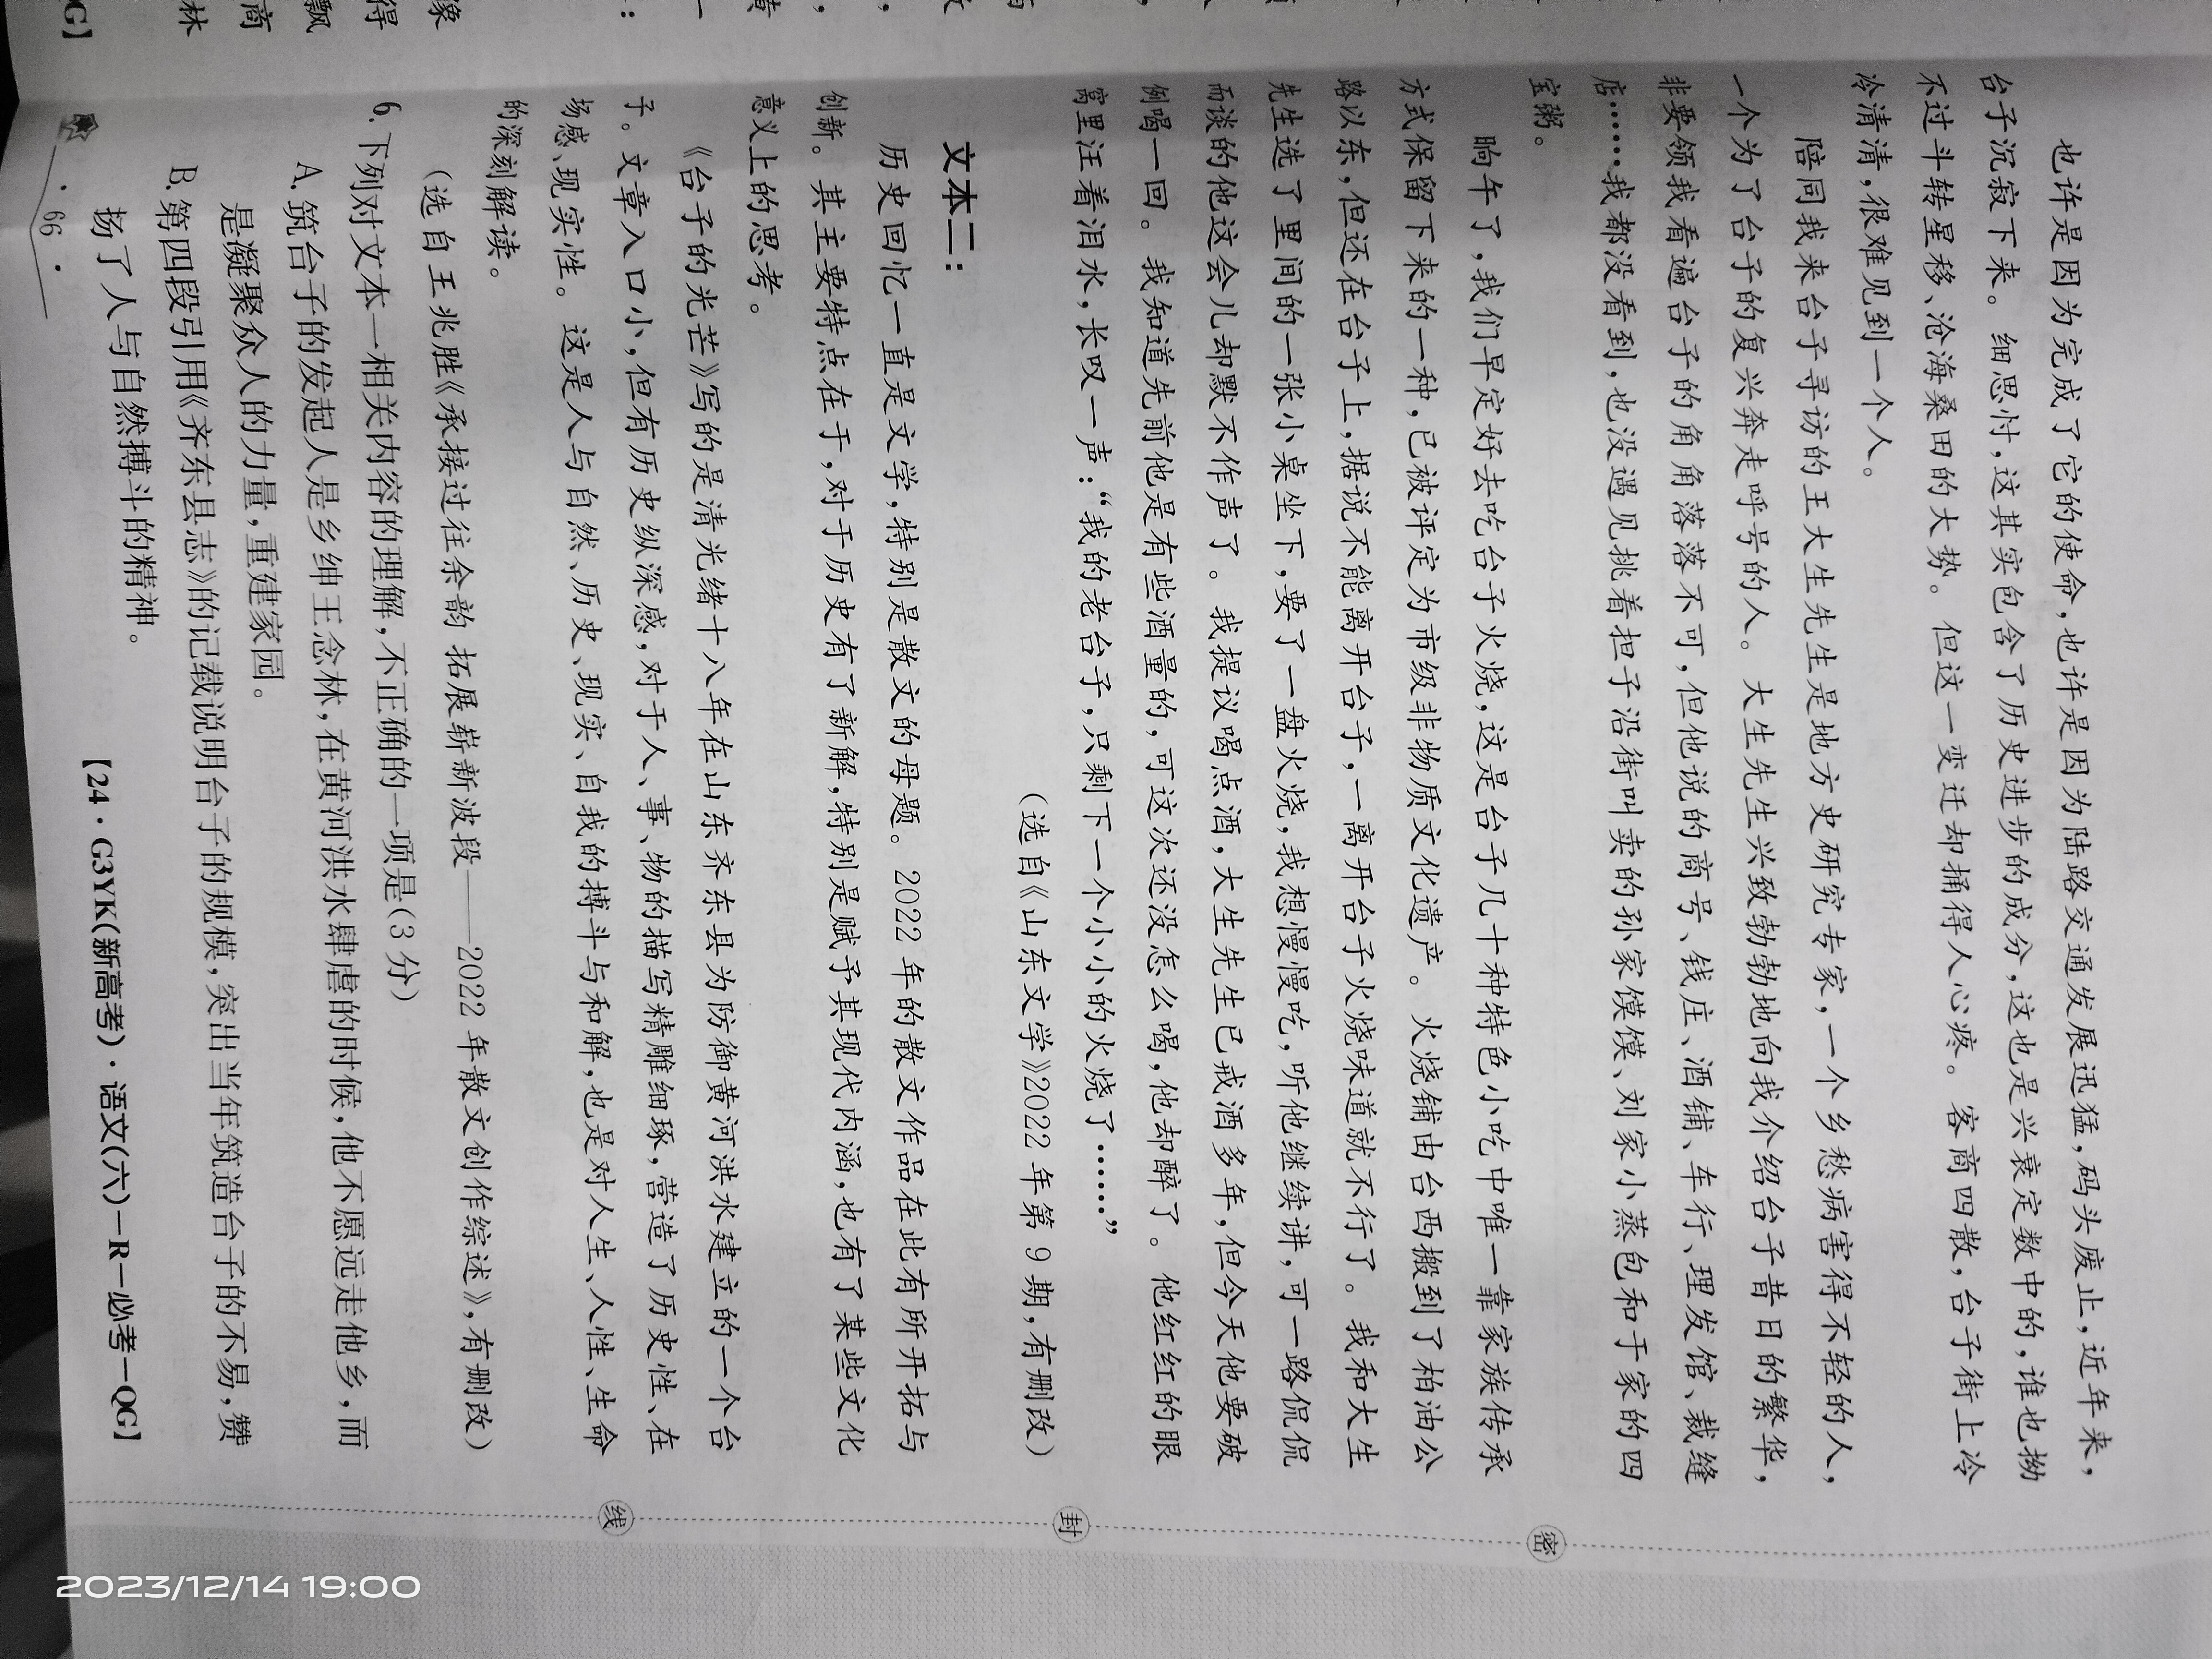 也许是因为完成了它的使命,也许是因为陆路交通发展迅猛,码头废止,近年来,
台子沉寂下来。细思忖,这其实包含了历史进步的成分,这也是兴衰定数中的,谁也拗
不过斗转星移、沧海桑田的大势。但这一变迁却捅得人心疼。客商四散,台子街上冷
冷清清,很难见到一个人。
陪同我来台子寻访的王大生先生是地方史研究专家,一个乡愁病害得不轻的人,
一个为了台子的复兴奔走呼号的人。大生先生兴致勃勃地向我介绍台子昔日的繁华,
非要领我看遍台子的角角落落不可,但他说的商号、钱庄、酒铺、车行、理发馆、裁缝
店……我都没看到,也没遇见挑着担子沿街叫卖的孙家馍馍、刘家小蒸包和于家的四
宝粥。
晌午了,我们早定好去吃台子火烧,这是台子几十种特色小吃中唯一靠家族传承
方式保留下来的一种,已被评定为市级非物质文化遗产。火烧铺由台西搬到了柏油公
路以东,但还在台子上,据说不能离开台子,一离开台子火烧味道就不行了。我和大生
先生选了里间的一张小桌坐下,要了一盘火烧,我想慢慢吃,听他继续讲,可一路侃侃
而谈的他这会儿却默不作声了。我提议喝点酒,大生先生已戒酒多年,但今天他要破
例喝一回。我知道先前他是有些酒量的,可这次还没怎么喝,他却醉了。他红红的眼
窝里汪着泪水,长叹一声:“我的老台子,只剩下一个小小的火烧了……”
(选自《山东文学》2022年第9期,有删改)
文本二:
历史回忆一直是文学,特别是散文的母题。2022年的散文作品在此有所开拓与
创新。其主要特点在于,对于历史有了新解,特别是赋予其现代内涵,也有了某些文化
意义上的思考。
《台子的光芒》写的是清光绪十八年在山东齐东县为防御黄河洪水建立的一个台
子。文章入口小,但有历史纵深感,对于人、事、物的描写精雕细琢,营造了历史性、在
场感、现实性。这是人与自然、历史、现实、自我的搏斗与和解,也是对人生、人性、生命
的深刻解读。
(选自王兆胜《承接过往余韵 拓展崭新波段——2022年散文创作综述》,有删改)
6.下列对文本一相关内容的理解,不正确的一项是(3分)
A.筑台子的发起人是乡绅王念林,在黄河洪水肆虐的时候,他不愿远走他乡,而
是凝聚众人的力量,重建家园。
B.第四段引用《齐东县志》的记载说明台子的规模,突出当年筑造台子的不易,赞
扬了人与自然搏斗的精神。
·66·
【24·G3YK(新高考)·语文(六)-R-必考-QG】
密
封
线
2023/12/14 19:00